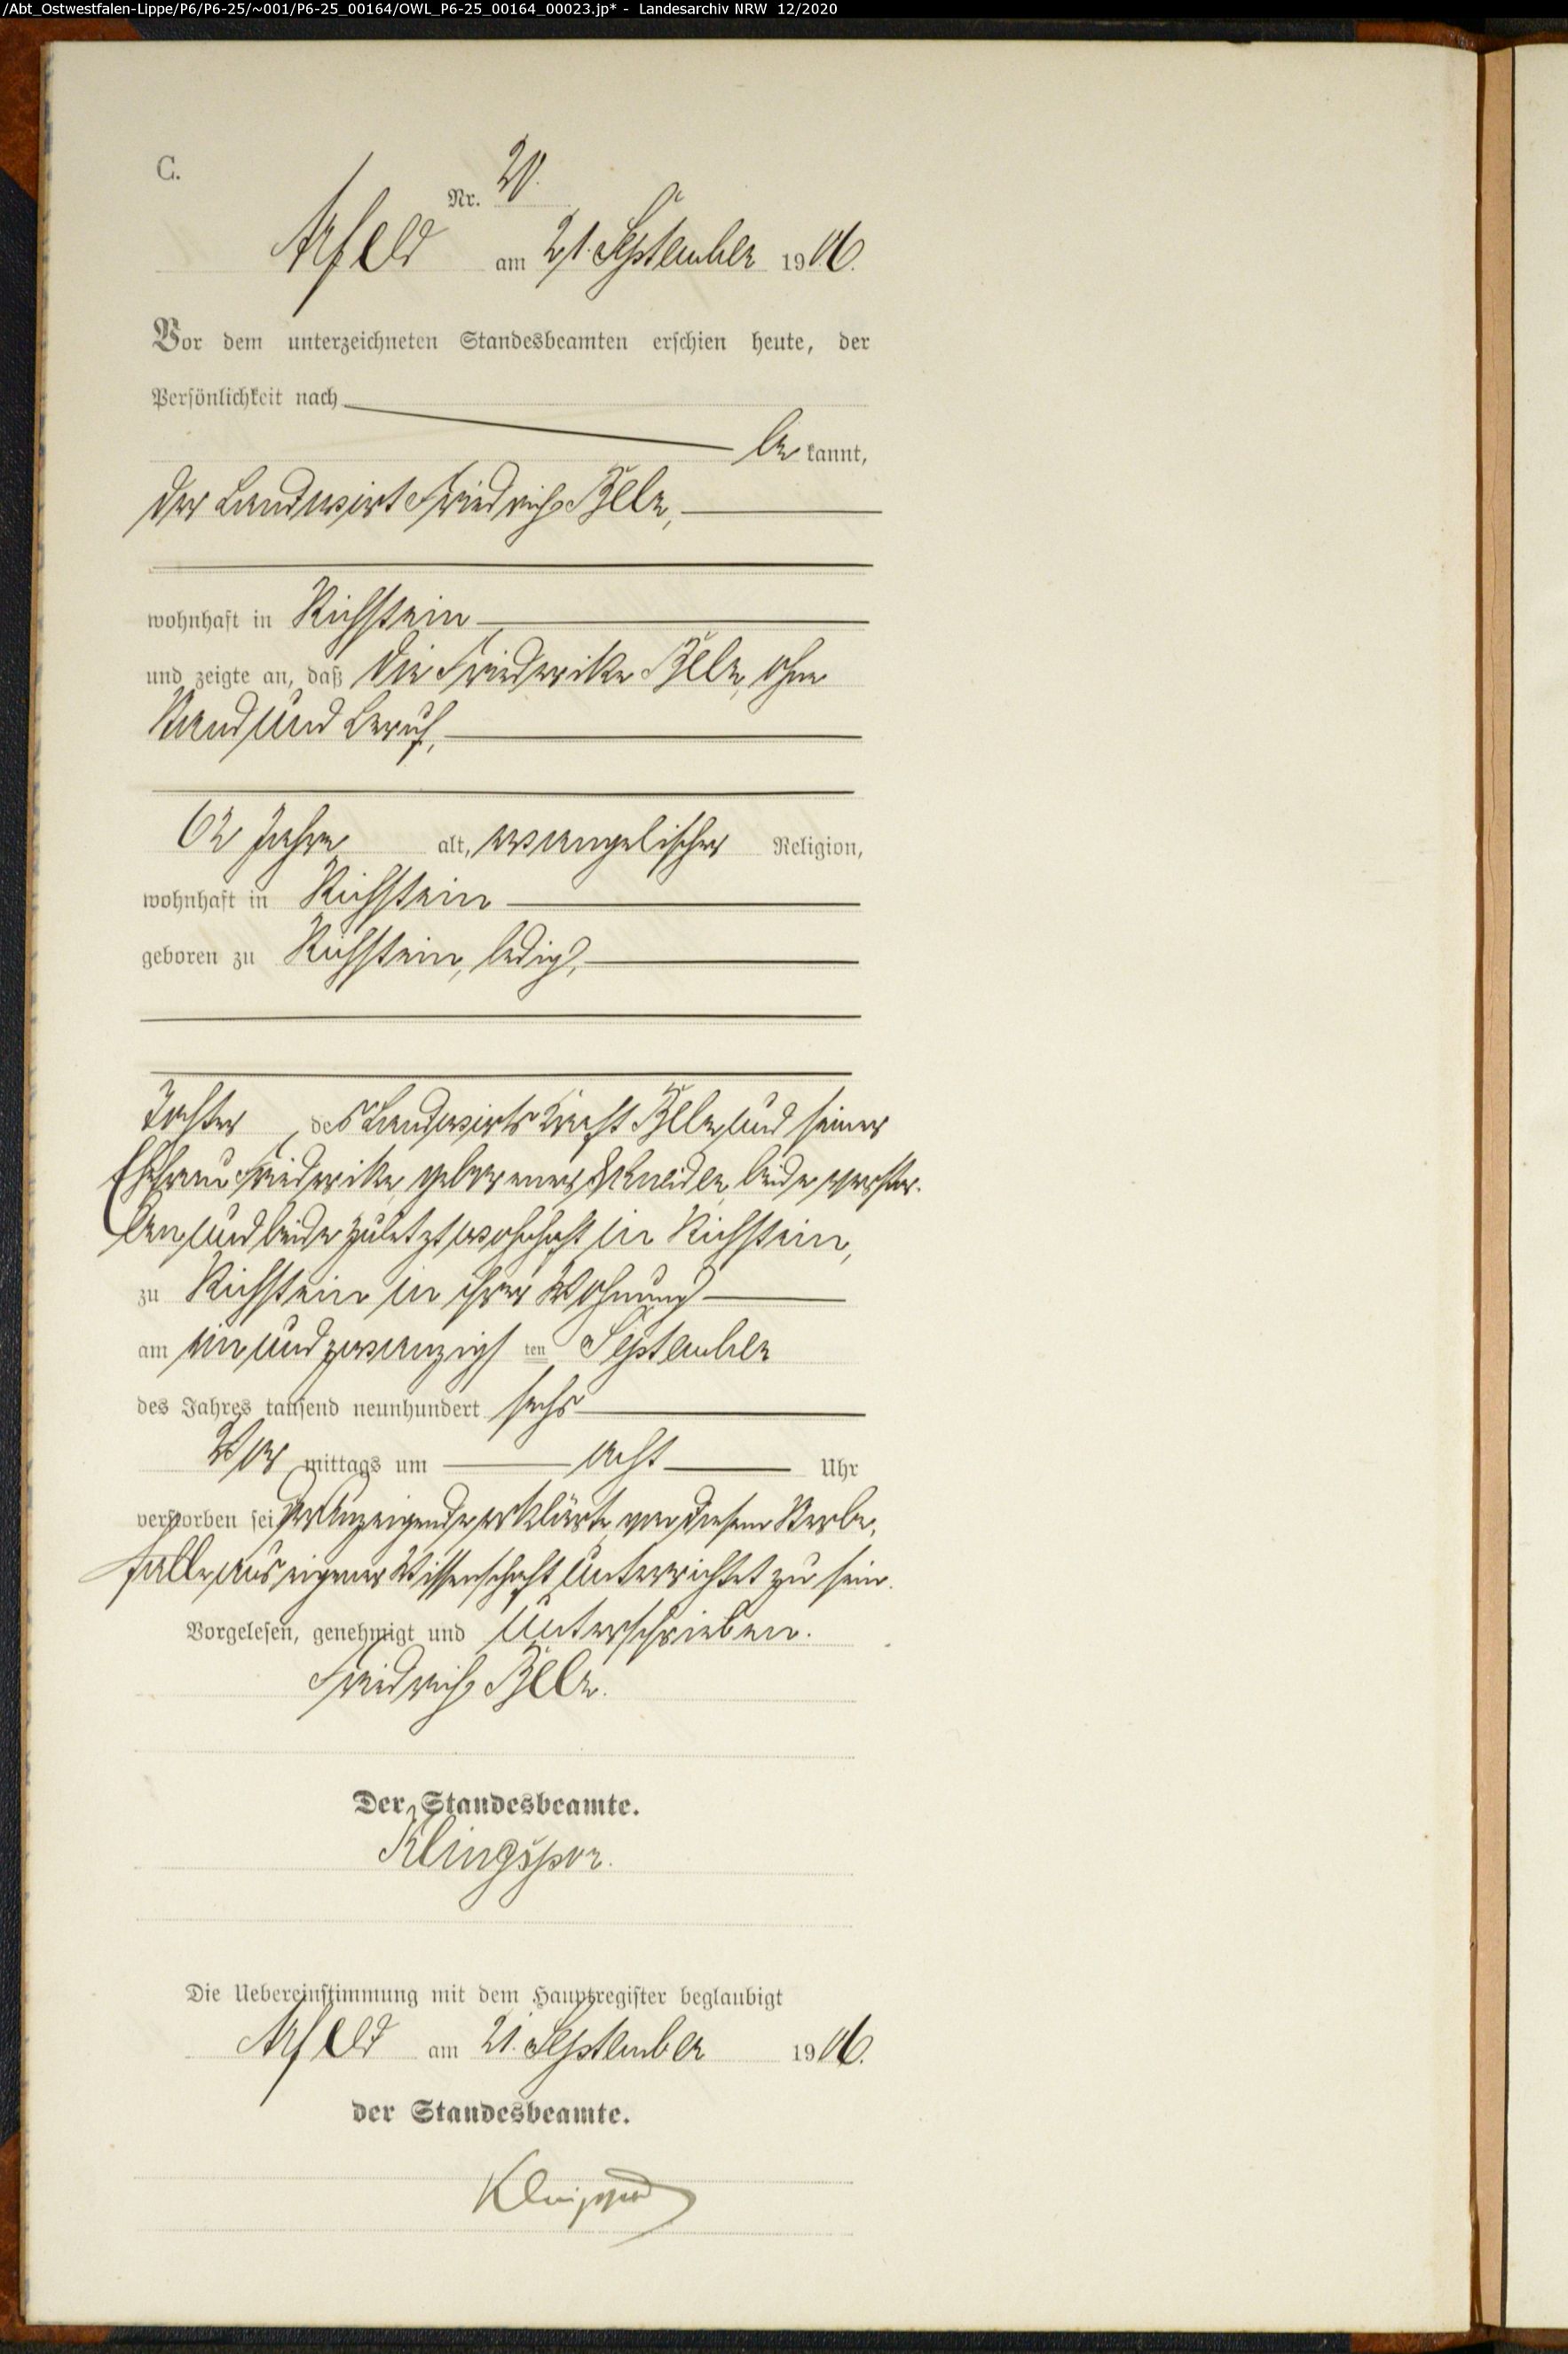 /Abt_Ostwestfalen-Lippe/P6/P6-25/~001/P6-25_00164/OWL_P6-25_00164_00023.jp* - Landesarchiv NRW 12/2020
C.
Nr. 20.
Arfeld am 21. September 1906.
Vor dem unterzeichneten Standesbeamten erschien heute, der
Persönlichkeit nach
be kannt,
der Landwirt Friedrich
wohnhaft in Richstein
und zeigte an, daß die Friederike ohne
Stand und Beruf,
62 Jahre alt, evangelischer Religion,
wohnhaft in Richstein
geboren zu Richstein, ledig,
Tochter des Landwirts Kraft und seiner
Ehefrau Friederike, geborener beide verstor-
ben und beide zuletzt wohnhaft in Richstein,
zu Richstein in ihrer Wohnung
am ein und zwanzigs ten September
des Jahres tausend neunhundert sechs
Vor mittags um acht Uhr
verstorben sei. Der Anzeigende erklärte, von diesem Sterbe-
falle aus eigener Wissenschaft unterrichtet zu sein.
Vorgelesen, genehmigt und unterschrieben.
Friedrich
Der Standesbeamte.
Klingspor.
Die Uebereinstimmung mit dem Hauptregister beglaubigt
Arfeld am 21. September 1906.
der Standesbeamte.
Klingspor